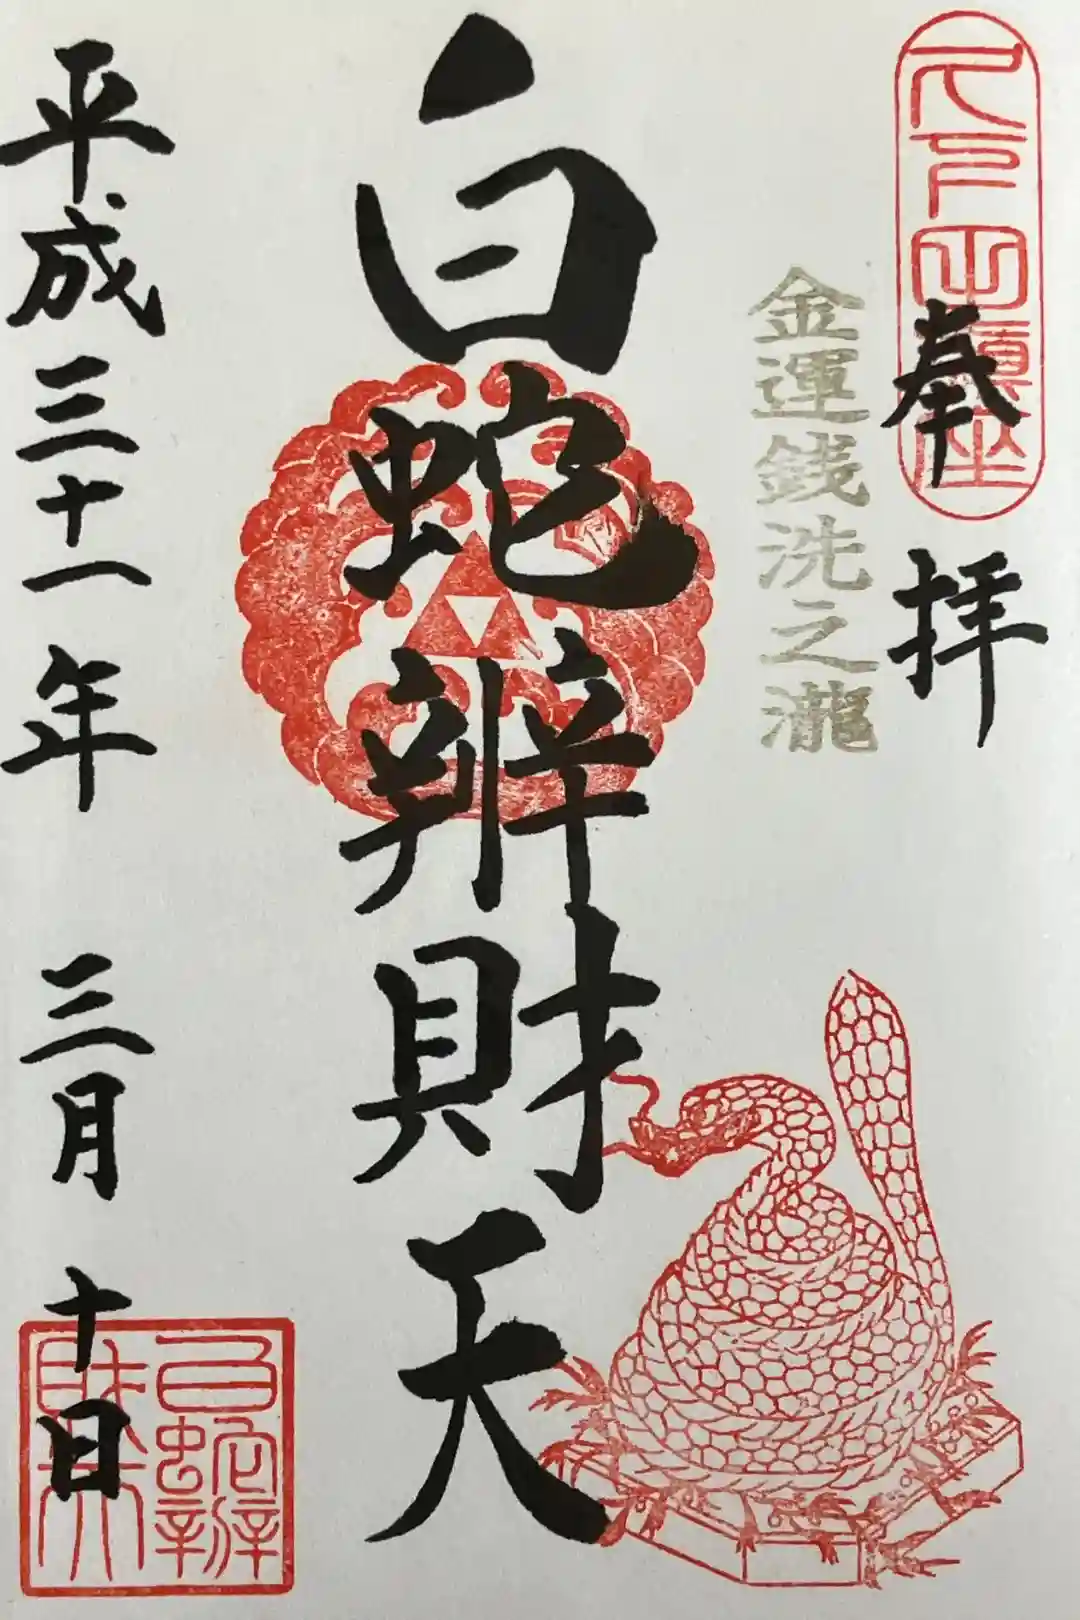 久下田鎮座
奉拝
金運銭洗之瀧
白蛇辨財天
平成三十一年 三月 十日
白蛇辨
財天